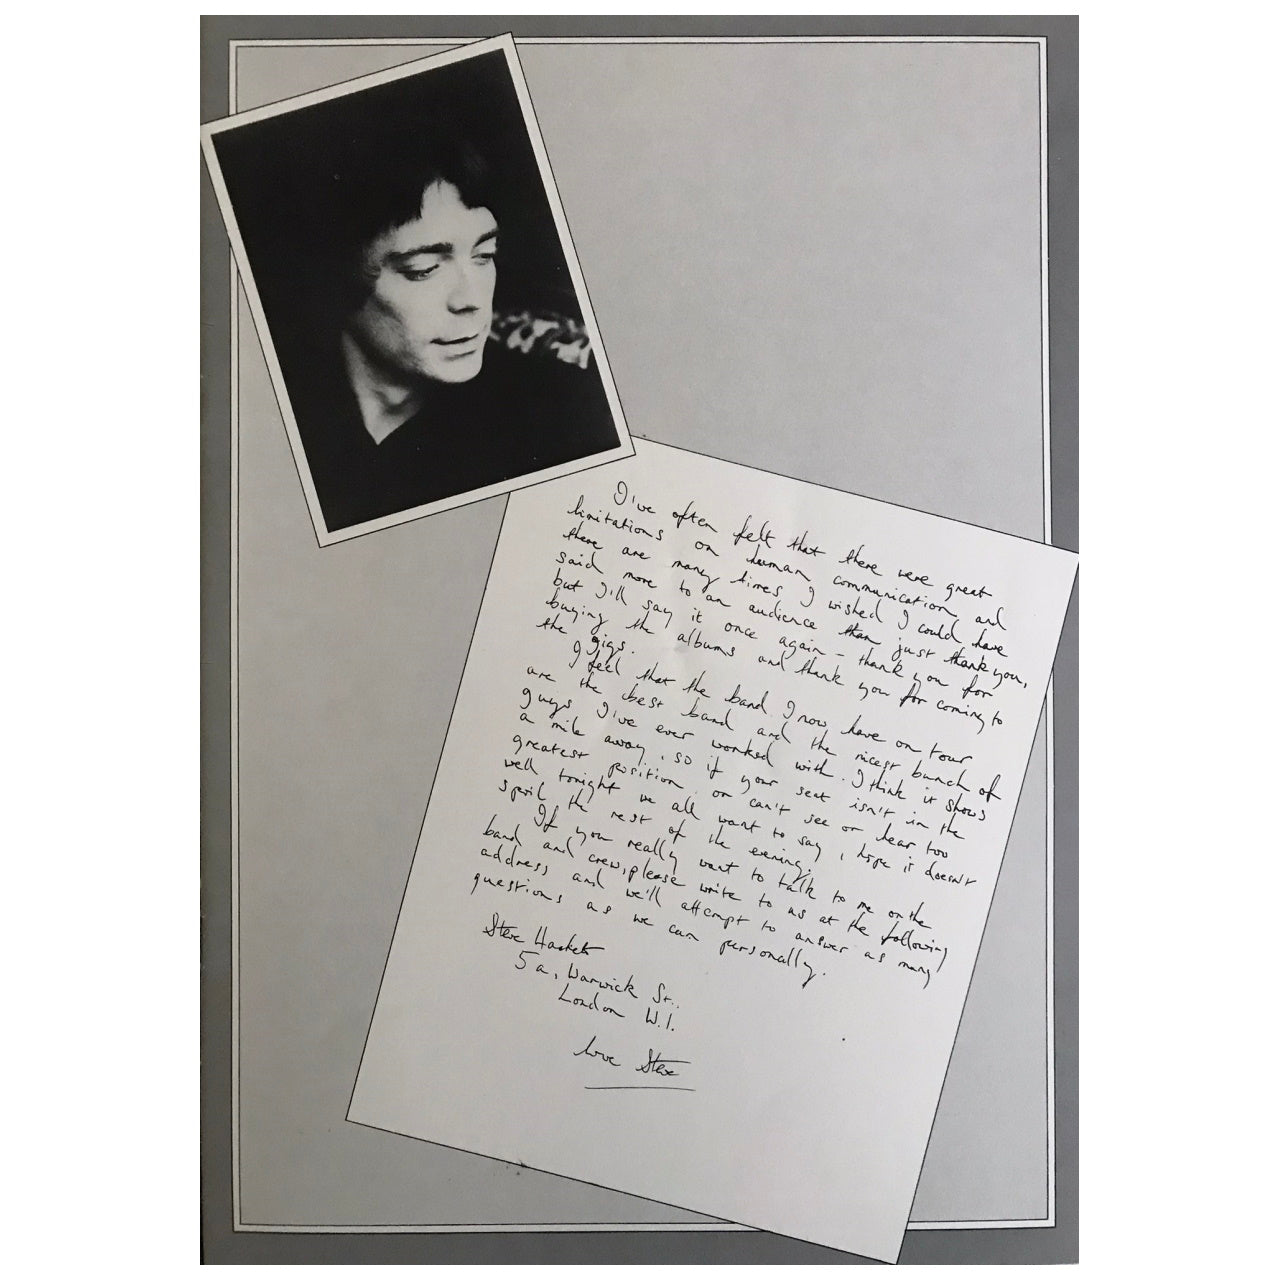 I've often felt that there were great
limitations on human communication and
there are many times I wished I could have
said more to an audience than just thankyou,
but I'll say it once again – thank you for
buying the albums and thank you for coming to
the gigs.
I feel that the band I now have on tour
are the best band and the nicest bunch of
guys I've ever worked with. I think it shows
a mile away, so if your seat isn't in the
greatest position or can't see or hear too
well tonight we all want to say, hope it doesn't
spoil the rest of the evening.
If you really want to talk to me or the
band and crew, please write to us at the following
address and we'll attempt to answer as many
questions as we can personally.
Steve Hackett
5a, Warwick St.,
London W.1.
love Steve